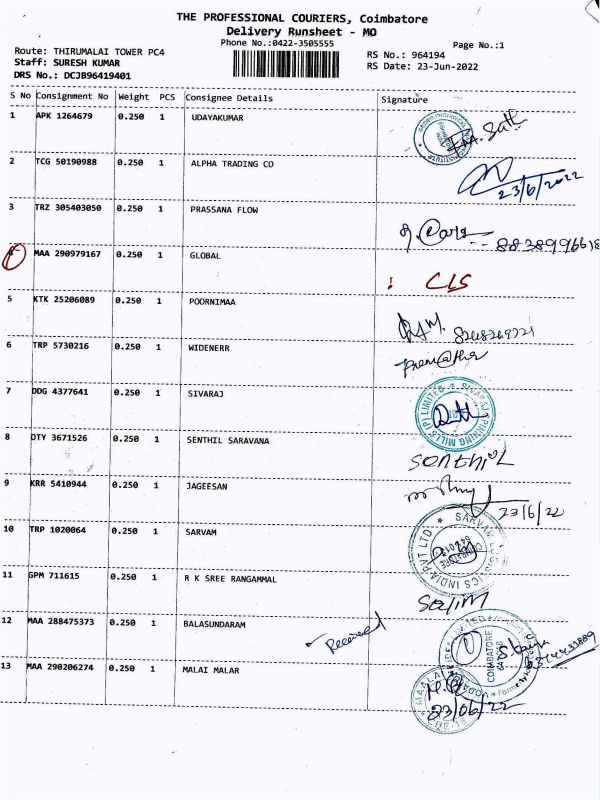 THE PROFESSIONAL COURIERS, Coimbatore
Delivery Runsheet - MO
Phone No.:0422-3505555
Page No.:1
Route: THIRUMALAI TOWER PC4
RS No.: 964194
Staff: SURESH KUMAR
RS Date: 23-Jun-2022
DRS No.: DCJB96419401
S No Consignment No Weight PCS Consignee Details Signature
1 APK 1264679 0.250 1 UDAYAKUMAR
2 TCG 50190988 0.250 1 ALPHA TRADING CO
23/6/2022
3 TRZ 305403050 0.250 1 PRASSANA FLOW
8838996618
4 MAA 290979167 0.250 1 GLOBAL
CLS
5 KTK 25206089 0.250 1 POORNIMAA
6 TRP 5730216 0.250 1 WIDENERR
7 DDG 4377641 0.250 1 SIVARAJ
8 OTY 3671526 0.250 1 SENTHIL SARAVANA
SENTHIL
9 KRR 5410944 0.250 1 JAGEESAN
23/6/22
10 TRP 1020064 0.250 1 SARVAM
11 GPM 711615 0.250 1 R K SREE RANGAMMAL
Salim
12 MAA 288475373 0.250 1 BALASUNDARAM
Received
COIMBATORE
13 MAA 290206274 0.250 1 MALAI MALAR
23/06/22